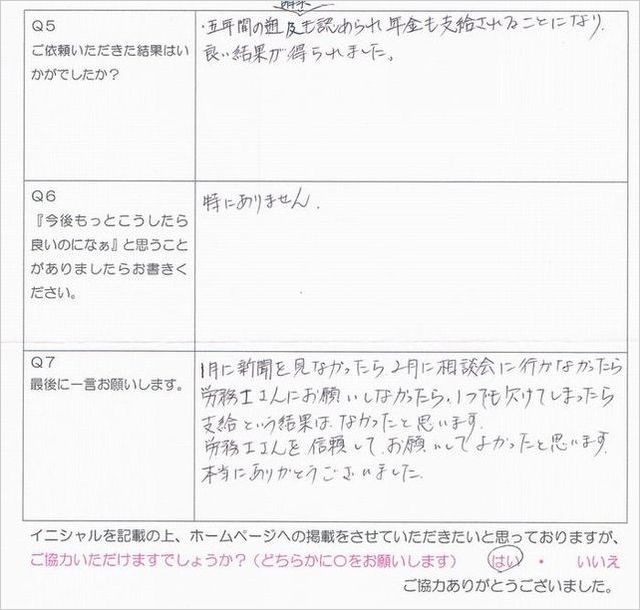 Q5
ご依頼いただきた結果はい
かがでしたか?
・五年間の遡及も認められ年金も支給されることになり
良い結果が得られました。
Q6
『今後もっとこうしたら
良いのになぁ』と思うこと
がありましたらお書きく
ださい。
特にありません.
Q7
最後に一言お願いします。
1月に新聞を見なかったら2月に相談会に行かなかったら
労務士さんにお願いしなかったら、1つでも欠けてしまったら
支給という結果は、なかったと思います.
労務士さんを信頼して、お願いしてよかったと思います.
本当にありがとうございました.
イニシャルを記載の上、ホームページへの掲載をさせていただきたいと思っておりますが、
ご協力いただけますでしょうか?(どちらかに○をお願いします) はい ・ いいえ
ご協力ありがとうございました。